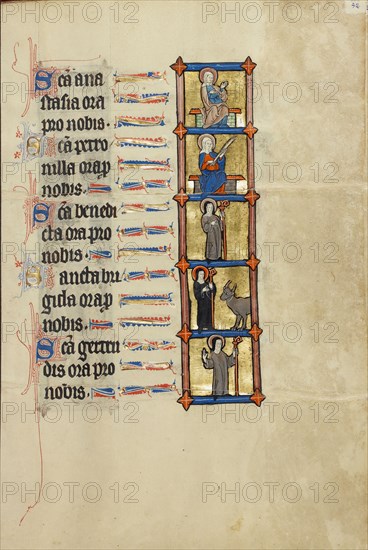 Scā ana
stasia ora
pro nobis.
Scā petro
nilla ora p
nobis.
Scā benedi
cta ora pro
nobis.
Sancta bri
gida ora p
nobis.
Scā gertru
dis ora pro
nobis.
PHOTO 12